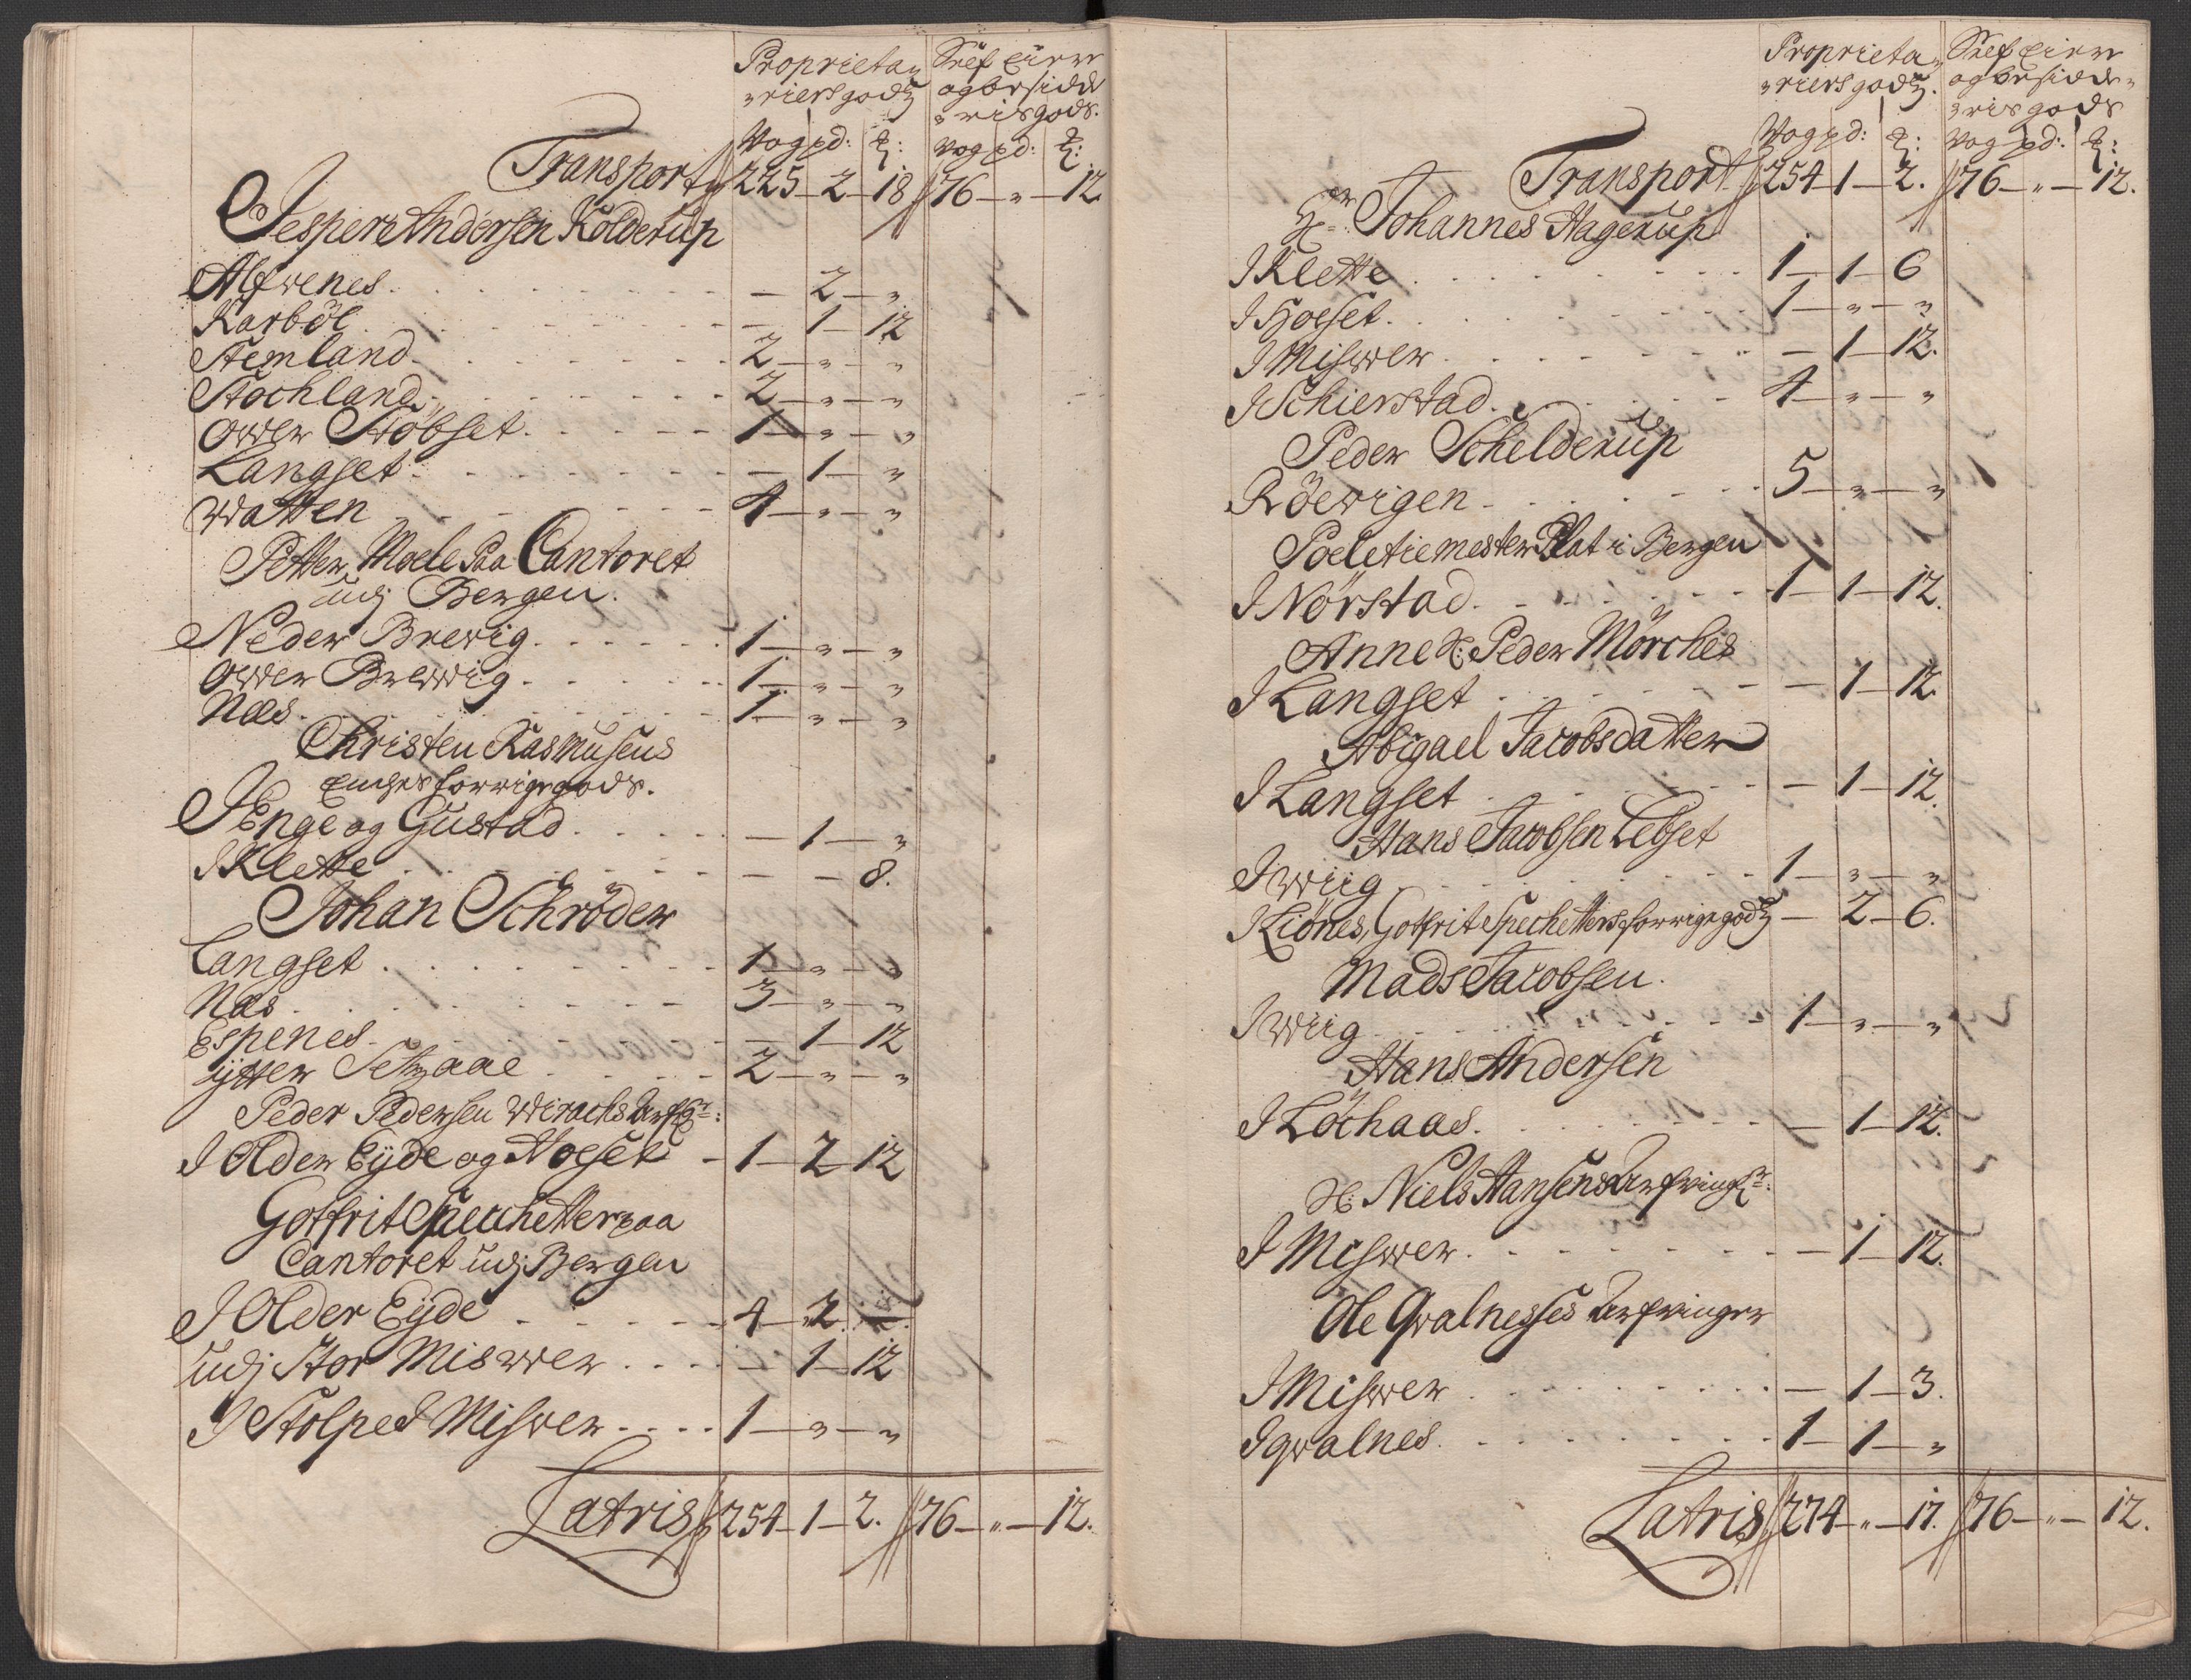 Proprieta- Self Eiere
-riers godz og besidde
-ris gods.
Wog pd: ℔: wog pd: ℔:
Transport 225 - 2 - 18 76 - " - 12
Jesper Andersen Kolderup
Alfvenes . . . - 2 - "
Karböl . . . - 1 - 12
Stemland . . . 2 - " - "
Stochland . . . 2 - " - "
Ower Stöbset . . . 1 - " - "
Langset . . . - 1 - "
Watten . . . 4 - " - "
Petter Moele Paa Cantoret
udj Bergen.
Neder Brewig . . . 1 - " - "
Ower Brewig . . . 1 - " - "
Næs . . . 1 - " - "
Christen Rasmusens
Enches forrige gods.
J Enge og Gustad . . . - 1 - "
J Klette . . . - - 8.
Johan Schröder
Langset . . . 1 - " - "
Næs . . . 3 - " - "
Espenes . . . - 1 - 12
ytter Setzaae . . . 2 - " - "
Peder Pedersen
J Older Eyde og Hoeset - 1 - 2 - 12
Gotfrit Spechetter paa
Cantoret udj Bergen
J Older Eyde . . . 4 - 2.
udj Stor Miswer . . . - 1 - 12
J Stolped Miswer . . . 1 - " - "
Latris 254 - 1 - 2. 76 - " - 12.
Proprieta- Self Eiere
-riers godz. og besidde-
-ris gods
Wog pd: ℔: wog pd: ℔:
Transport 254 1 - 2. 76 - " - 12.
Hr: Johannes Hagerup
J Klette . . . 1 - 1 - 6
J Hoeset . . . 1 - " - "
J Miswer . . . - 1 - 12.
J Schierstad . . . 4 - " - "
Peder Schelderup
Röewigen . . . 5 - " - "
Poeletiemester Plat i Bergen
J Nörstad . . . 1 - 1 - 12.
Anne Sl: Peder Mörches
J Langset . . . - 1 - 12.
Abigael Jacobsdatter
J Langset . . . - 1 - 12.
Hans Jacobsen Lebset
J Wiig . . . 1 - " - "
J Kiönes, Gotfrit Spechetters forrige godz - 2 - 6.
Mads Jacobsen.
J Wiig . . . 1 - " - "
Hans Andersen
J Löchaas . . . - 1 - 12.
Sl: Niels Hansens
J Miswer . . . - 1 - 12.
Ole Qvalnesses Arfvinger
J Miswer . . . - 1 - 3.
J qvalnes . . . 1 - 1 - "
Latris 274 - " - 17. 76 - " - 12.